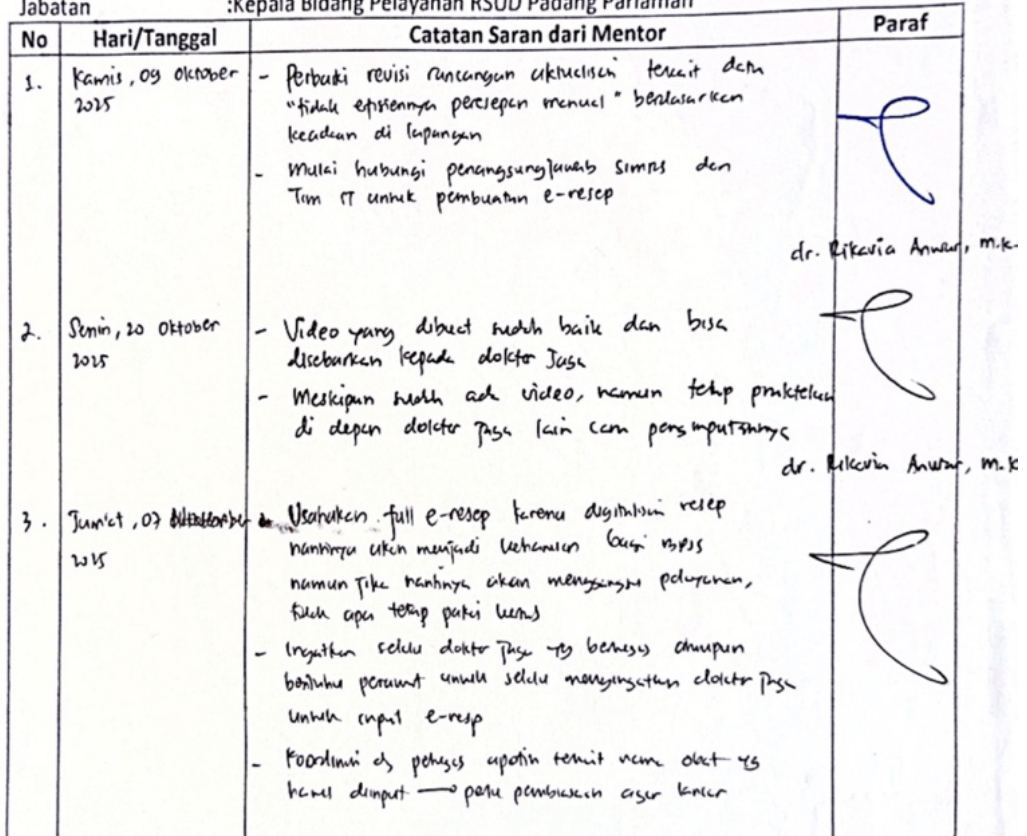 Jabatan :Kepala Bidang Pelayanan RSUD Padang Pariaman
No Hari/Tanggal Catatan Saran dari Mentor Paraf
1. Kamis, 09 Oktober 2025
- Perbaiki revisi rancangan aktualisasi terkait data
"tidak efisiennya peresepan manual" berdasarkan
keadaan di lapangan
- Mulai hubungi penanggungjawab SIMRS dan
Tim IT untuk pembuatan e-resep
dr. Rikavia Anwar, m.k
2. Senin, 20 Oktober 2025
- Video yang dibuat sudah baik dan bisa
disebarkan kepada dokter Jaga
- Meskipun sudah ada video, namun tetap praktekan
di depan dokter jaga lain cara penginputannya
dr. Rikavia Anwar, m.k
3. Jum'at, 07 2025
- Usahakan full e-resep karena digitalisasi resep
nantinya akan menjadi keharusan bagi BPJS
namun jika nantinya akan mengganggu pelayanan,
tidak apa tetap pakai kertas
- Ingatkan selalu dokter jaga yg bertugas ataupun
perawat untuk selalu mengingatkan dokter jaga
untuk input e-resp
- Koordinasi dg petugas apotik terkait nama obat yg
harus diinput → perlu pembiasaan agar lancar